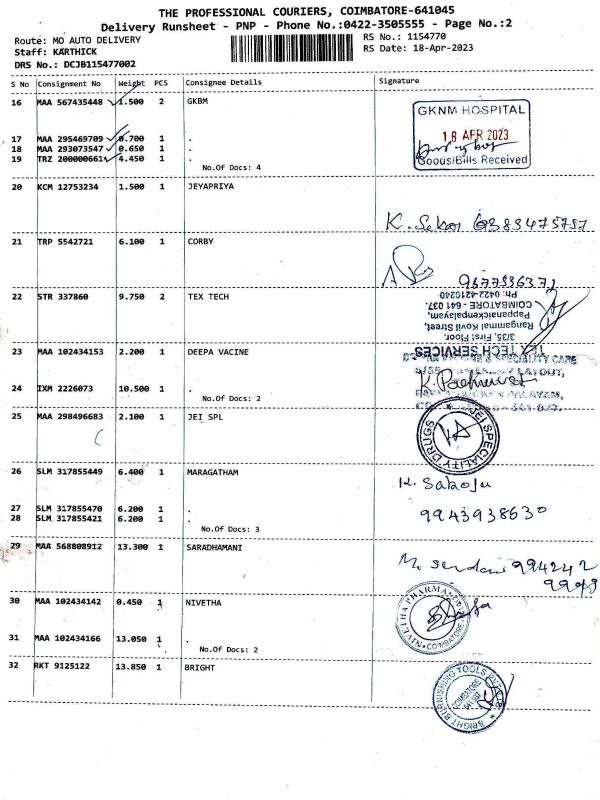 THE PROFESSIONAL COURIERS, COIMBATORE-641045
Delivery Runsheet - PNP - Phone No.:0422-3505555 - Page No.:2
Route: MO AUTO DELIVERY
Staff: KARTHICK
DRS No.: DCJB115477002
RS No.: 1154770
RS Date: 18-Apr-2023
S No Consignment No Weight PCS Consignee Details Signature
16 MAA 567435448 1.500 2 GKBM
GKNM HOSPITAL
18 APR 2023
Goods/Bills Received
17 MAA 295469709 0.700 1 .
18 MAA 293073547 0.650 1 .
19 TRZ 200000661 4.450 1 .
No.Of Docs: 4
20 KCM 12753234 1.500 1 JEYAPRIYA
K. Sekar 6383475757
21 TRP 5542721 6.100 1 CORBY
9677336371
22 STR 337860 9.750 2 TEX TECH
TEX TECH SERVICES
3/35, First Floor,
Rangammal Kovil Street,
Pappanaickenpalayam,
COIMBATORE - 641 037.
Ph. 0422-4210240
23 MAA 102434153 2.200 1 DEEPA VACINE
SPECIALITY CARE
LAYOUT,
24 IXM 2226073 10.500 1 .
No.Of Docs: 2
25 MAA 298496683 2.100 1 JEI SPL
JEI SPECIALITY DRUGS
26 SLM 317855449 6.400 1 MARAGATHAM
K. Saroja
9943938630
27 SLM 317855470 6.200 1 .
28 SLM 317855421 6.200 1 .
No.Of Docs: 3
29 MAA 568808912 13.300 1 SARADHAMANI
994242
30 MAA 102434142 0.450 1 NIVETHA
NIVETHA PHARMA
COIMBATORE
31 MAA 102434166 13.050 1 .
No.Of Docs: 2
32 RKT 9125122 13.850 1 BRIGHT
BRIGHT BURNISHING TOOLS PVT
COIMBATORE